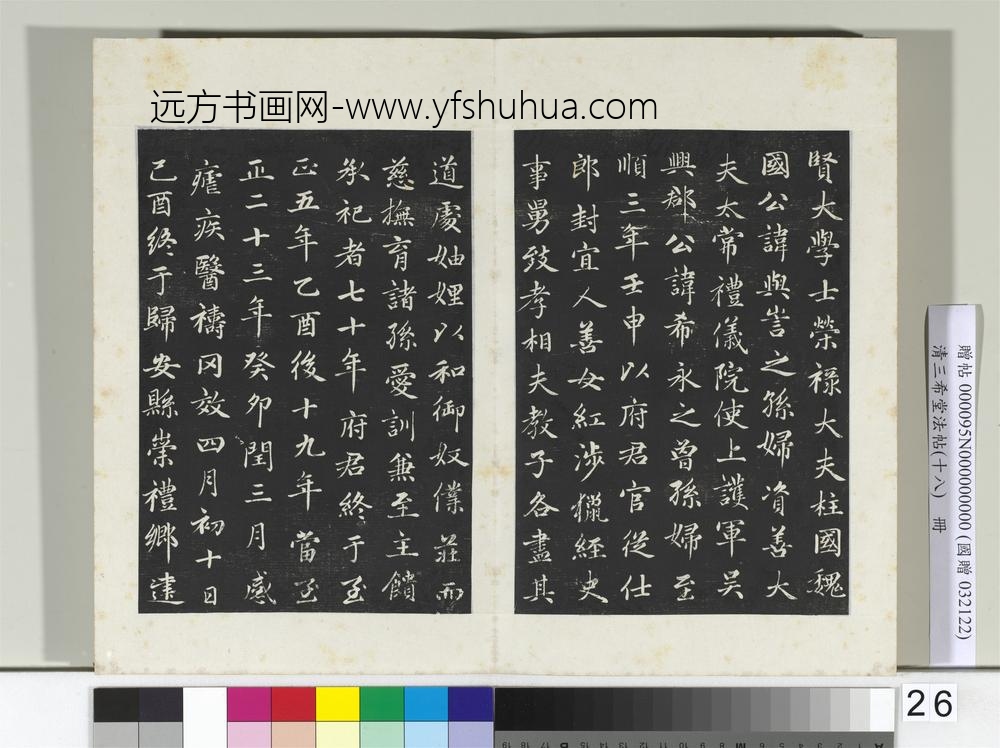 远方书画网-www.yfshuhua.com
賢大學士榮祿大夫柱國魏
國公諱與訔之孫婦資善大
夫太常禮儀院使上護軍吴
興郡公諱希永之曾孫婦至
順三年壬申以府君官從仕
郎封宜人善女紅涉獵経史
事舅致孝相夫教子各盡其
道處妯娌以和御奴僕莊而
慈撫育諸孫愛訓兼至主饋
承祀者七十年府君終于至
正五年乙酉後十九年當至
正二十三年癸卯閏三月感
瘧疾醫禱罔效四月初十日
己酉終于歸安縣崇禮鄉遠
贈帖 000095N000000000 (國贈 032122)
清三希堂法帖(十八) 冊
26